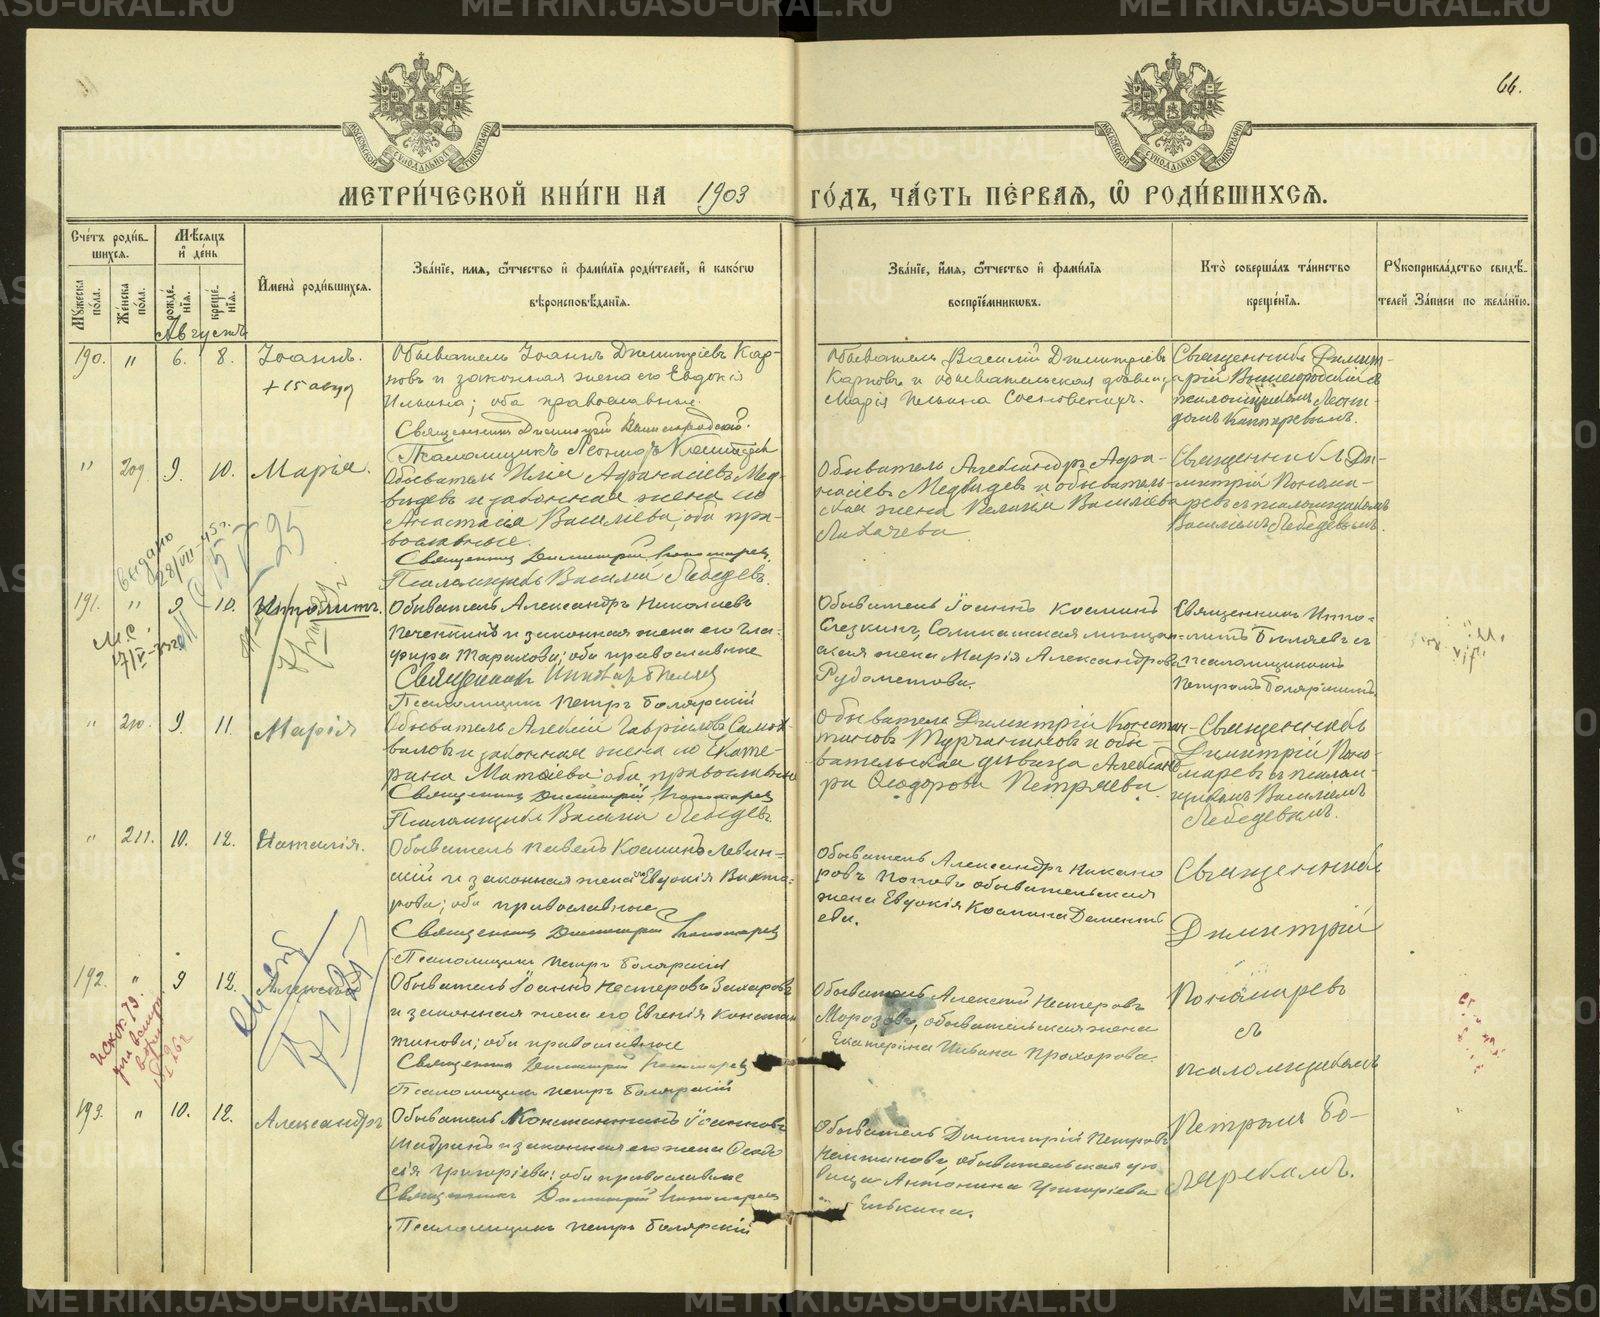 METRIKI.GASU-URAL.RU
66.
МОСКОВСКОЙ СѴНОДАЛЬНОЙ ТИПОГРАФІИ
МОСКОВСКОЙ СѴНОДАЛЬНОЙ ТИПОГРАФІИ
МЕТРИ́ЧЕСКОЙ КНИ́ГИ НА 1903 ГО́ДЪ, ЧА́СТЬ ПЕ́РВАЯ, Ѡ҆ РОДИ́ВШИХСЯ.
Сче́тъ роди́в-
шихся.
Му́жеска по́ла.
Же́нска по́ла.
Мѣ́сяцъ
и҆ де́нь
рожде́-
нїя.
креще́-
нїя.
И҆мена̀ роди́вшихся.
Зва́нїе, имя, ѻ҆́тчество и҆ фами́лїя роди́телей, и҆ како́гѡ
вѣроисповѣ́данїя.
Зва́нїе, и҆́мя, ѻ҆́тчество и҆ фами́лїя
воспрїе́мникѡвъ.
Кто̀ соверша́лъ та́инство
креще́нїя.
Рꙋкоприкла́дство свидѣ́-
телей За́писи по жела́нїю.
Августъ
190. " 6. 8. Іоаннъ.
+ 15 авгу
Обыватель Іоаннъ Димитріевъ Кар-
повъ и законная жена его Евдокія
Ильина; оба православные.
Священникъ Димитрій Вышегородскій.
Псаломщикъ Леонид
Обыватель Василій Димитріевъ
Карповъ и обывательская
Марія Ильина
Священникъ Димит-
рій Вышегородскій съ
псаломщикомъ Леони-
домъ
" 209 9. 10. Марія.
Обыватель Илія Афанасіевъ Мед-
вѣдевъ и законная жена его
Анастасія Василіева; оба пра-
вославные.
Священникъ Димитрій Пономаревъ
Псаломщикъ Василій Лебедевъ.
Обыватель Александръ Афа-
насіевъ Медвѣдевъ и обыватель-
ская жена Пелагія Василіева
Лихачева.
Священникъ Ди-
митрій Понома-
ревъ съ псаломщикомъ
Василіемъ Лебедевымъ.
выдано
28/VII-45 г.
191. " 9 10. Ипполитъ.
Обыватель Александръ Николаевъ
Печеткинъ и законная жена его Гла-
фира Тарахова; оба православные
Священникъ Ипполитъ Бѣляевъ
Псаломщикъ Петръ Боярскій
Обыватель Іоаннъ Косминъ
Слезкинъ, Соликамская мѣщан-
ская жена Марія Александрова
Рудометова.
Священникъ Иппо-
литъ Бѣляевъ съ
псаломщикомъ
Петромъ Боярскимъ.
" 210. 9. 11. Марія
Обыватель Алексій Гавріиловъ Само
валовъ и законная жена его Екате-
рина Матѳіева; оба православные
Священникъ Димитрій Пономаревъ
Псаломщикъ Василій Лебедевъ.
Обыватель Димитрій Констан-
тиновъ Турчаниновъ и обы-
вательская дѣвица Александ
ра Ѳеодорова Петряева.
Священникъ
Димитрій Поно-
маревъ съ псалом-
щикомъ Василіемъ
Лебедевымъ.
" 211. 10. 12. Наталія.
Обыватель Павелъ Косминъ Левин-
скій и законная жена его Евдокія Викто-
рова; оба православные
Священникъ Димитрій Пономаревъ
Псаломщикъ Петръ Боярскій
Обыватель Александръ Никано
ровъ Поповъ обывательская
жена Евдокія Космина Дементь
ева.
Священникъ
Димитрій
Пономаревъ
съ
псаломщикомъ
Петромъ Бо-
ярскимъ.
192. " 9 12. Алексій
Обыватель Іоаннъ Нестеровъ Захаровъ
и законная жена его Евгенія Констан
тинова; оба православные
Священникъ Димитрій Пономаревъ
Псаломщикъ Петръ Боярскій
Обыватель Алексій Нестеровъ
Морозовъ, обывательская жена
Екатерина Ильина Прохорова.
193. " 10. 12. Александръ
Обыватель Константинъ Іоанновъ
Шадринъ и законная его жена Ѳеодо
сія Григоріева; оба православные
Священникъ Димитрій Пономаревъ
Псаломщикъ Петръ Боярскій
Обыватель Димитрій Петровъ
обывательская дѣ
вица Антонина Григоріева